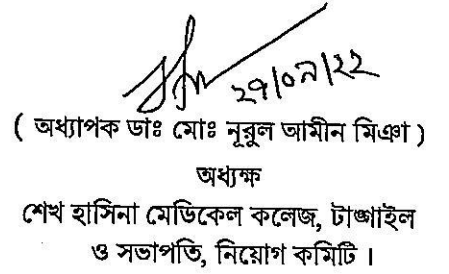 ২৭/০৯/২২
( অধ্যাপক ডাঃ মোঃ নূরুল আমীন মিঞা )
অধ্যক্ষ
শেখ হাসিনা মেডিকেল কলেজ, টাঙ্গাইল
ও সভাপতি, নিয়োগ কমিটি ।